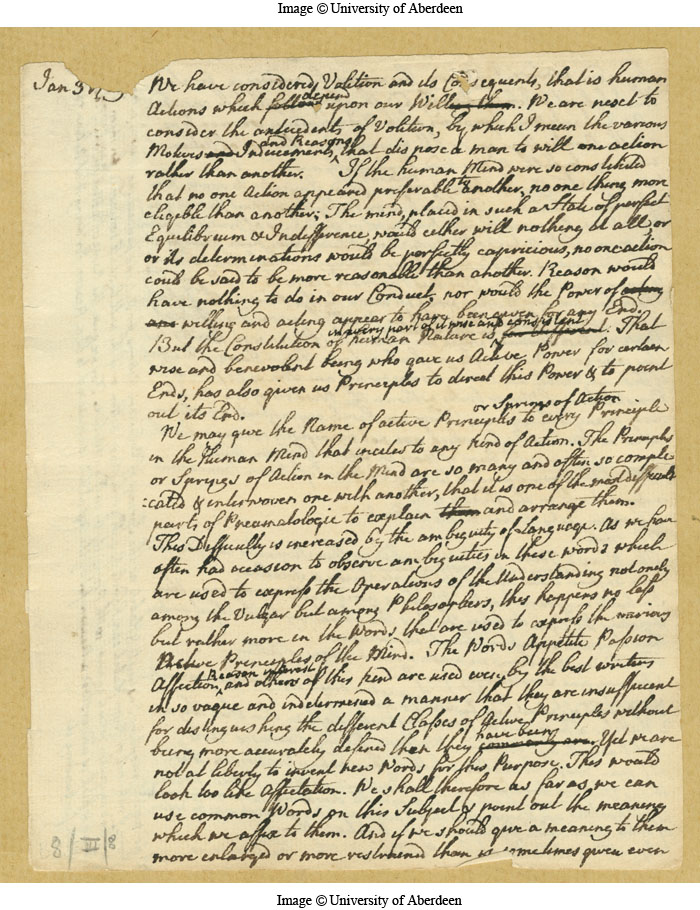 Image © University of Aberdeen
Jan 3
We have considered Volition and its Consequents, that is human
depend
Actions which follow upon our Will. We are next to
consider the antecedents of Volition, by which I mean the various
and Reasons
Motives and Inducements, that dispose a man to will one action
rather than another. If the human Mind were so constituted
that no one Action appeard preferable to another, no one thing more
eligible than another; The mind, placed in such a State of perfect
Equilibrium & Indifference, would either will nothing at all, or
or its determinations would be perfectly capricious, no one action
could be said to be more reasonable than another. Reason would
have nothing to do in our Conduct, nor would the Power of acting
and willing and acting appear to have been given for any End.
in every part of it wise and consistent
But the Constitution of human Nature is. That
wise and benevolent being who gave us Active Power for certain
Ends, has also given us Principles to direct this Power & to point
out its End.
or Springs of Action
We may give the Name of active Principles to every Principle
in the Human Mind that incites to any kind of Action. The Principles
or Springs of Action in the Mind are so many and often so compli
:cated & interwoven one with another, that it is one of the most difficult
parts of Pneumatologie to explain them and arrange them.
This Difficulty is increased by the ambiguity of Language. As we have
often had occasion to observe ambiguities in these words which
are used to express the Operations of the Understanding not only
among the Vulgar but among Philosophers, this happens no less
but rather more in the Words, that are used to express the various
Active Principles of the Mind. The Words Appetite Passion
Reason interest
Affection, and others of this kind are used even by the best writers
in so vague and indetermined a manner that they are insufficient
for distinguishing the different Classes of Active Principles without
have being
being more accurately defined than they commonly are. Yet we are
not at liberty to invent new Words for this Purpose. This would
look too like Affectation. We shall therefore as far as we can
use common Words on this Subject & point out the meaning
which we affix to them. And if we should give a meaning to them
more enlarged or more restrained than is sometimes given even
8/III/8
Image © University of Aberdeen